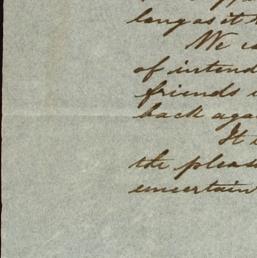 long as it
We
of intend
friends
back aga
It
the pleas
uncertain